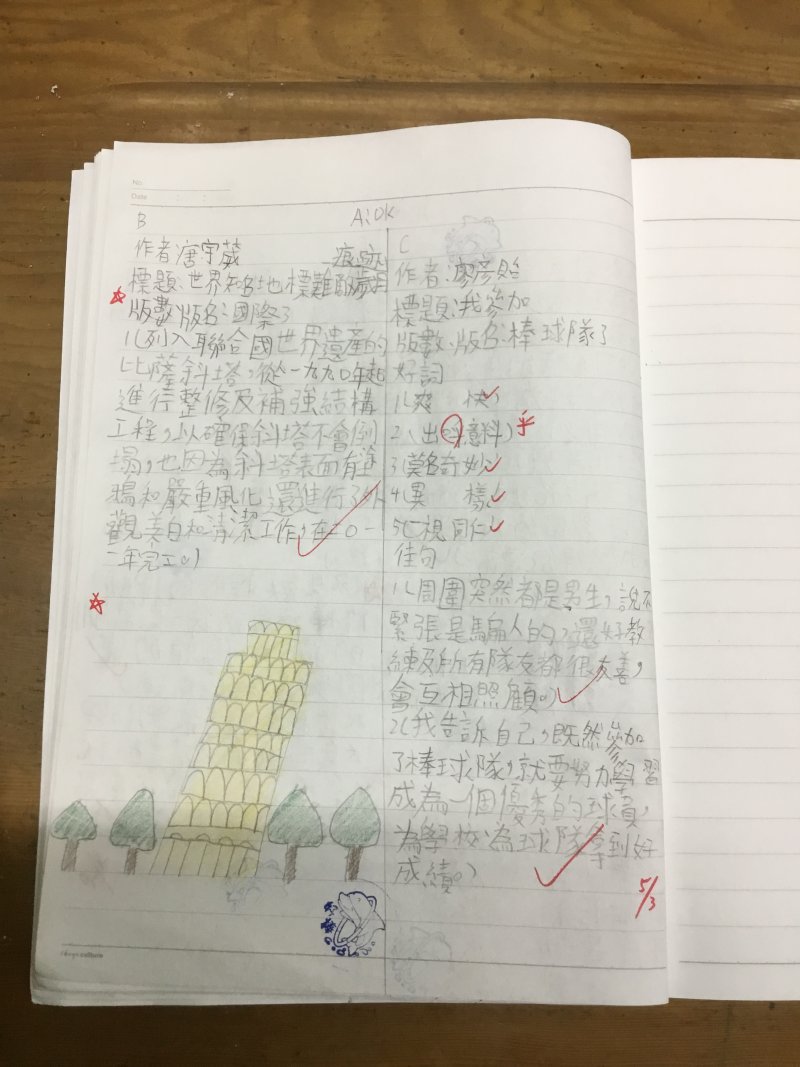 No
Date
A:OK
B
作者:唐宇葳
標題:世界知名地標難敵歲月
痕跡
版數、版名:國際3
1.(列入聯合國世界遺產的
比薩斜塔,從一九九〇年起
進行整修及補強結構
工程,以確保斜塔不會倒
塌,也因為斜塔表面有
和嚴重風化還進行了外
觀美白和清潔工作,在二〇一
一年完工。)
C
作者:廖彥貽
標題:我參加
版數、版名:棒球隊了
好詞
1.(爽 快)
2.(出乎意料)乎
3.(莫名奇妙)
4.(異 樣)
5.(一視同仁)
佳句
1.(周圍突然都是男生,說不
緊張是騙人的,還好教
練及所有隊友都很友善,
會互相照顧。)
2.(我告訴自己,既然參加
了棒球隊,就要努力學習
成為一個優秀的球員,
為學校、為球隊拿到好
成績。)
5/3